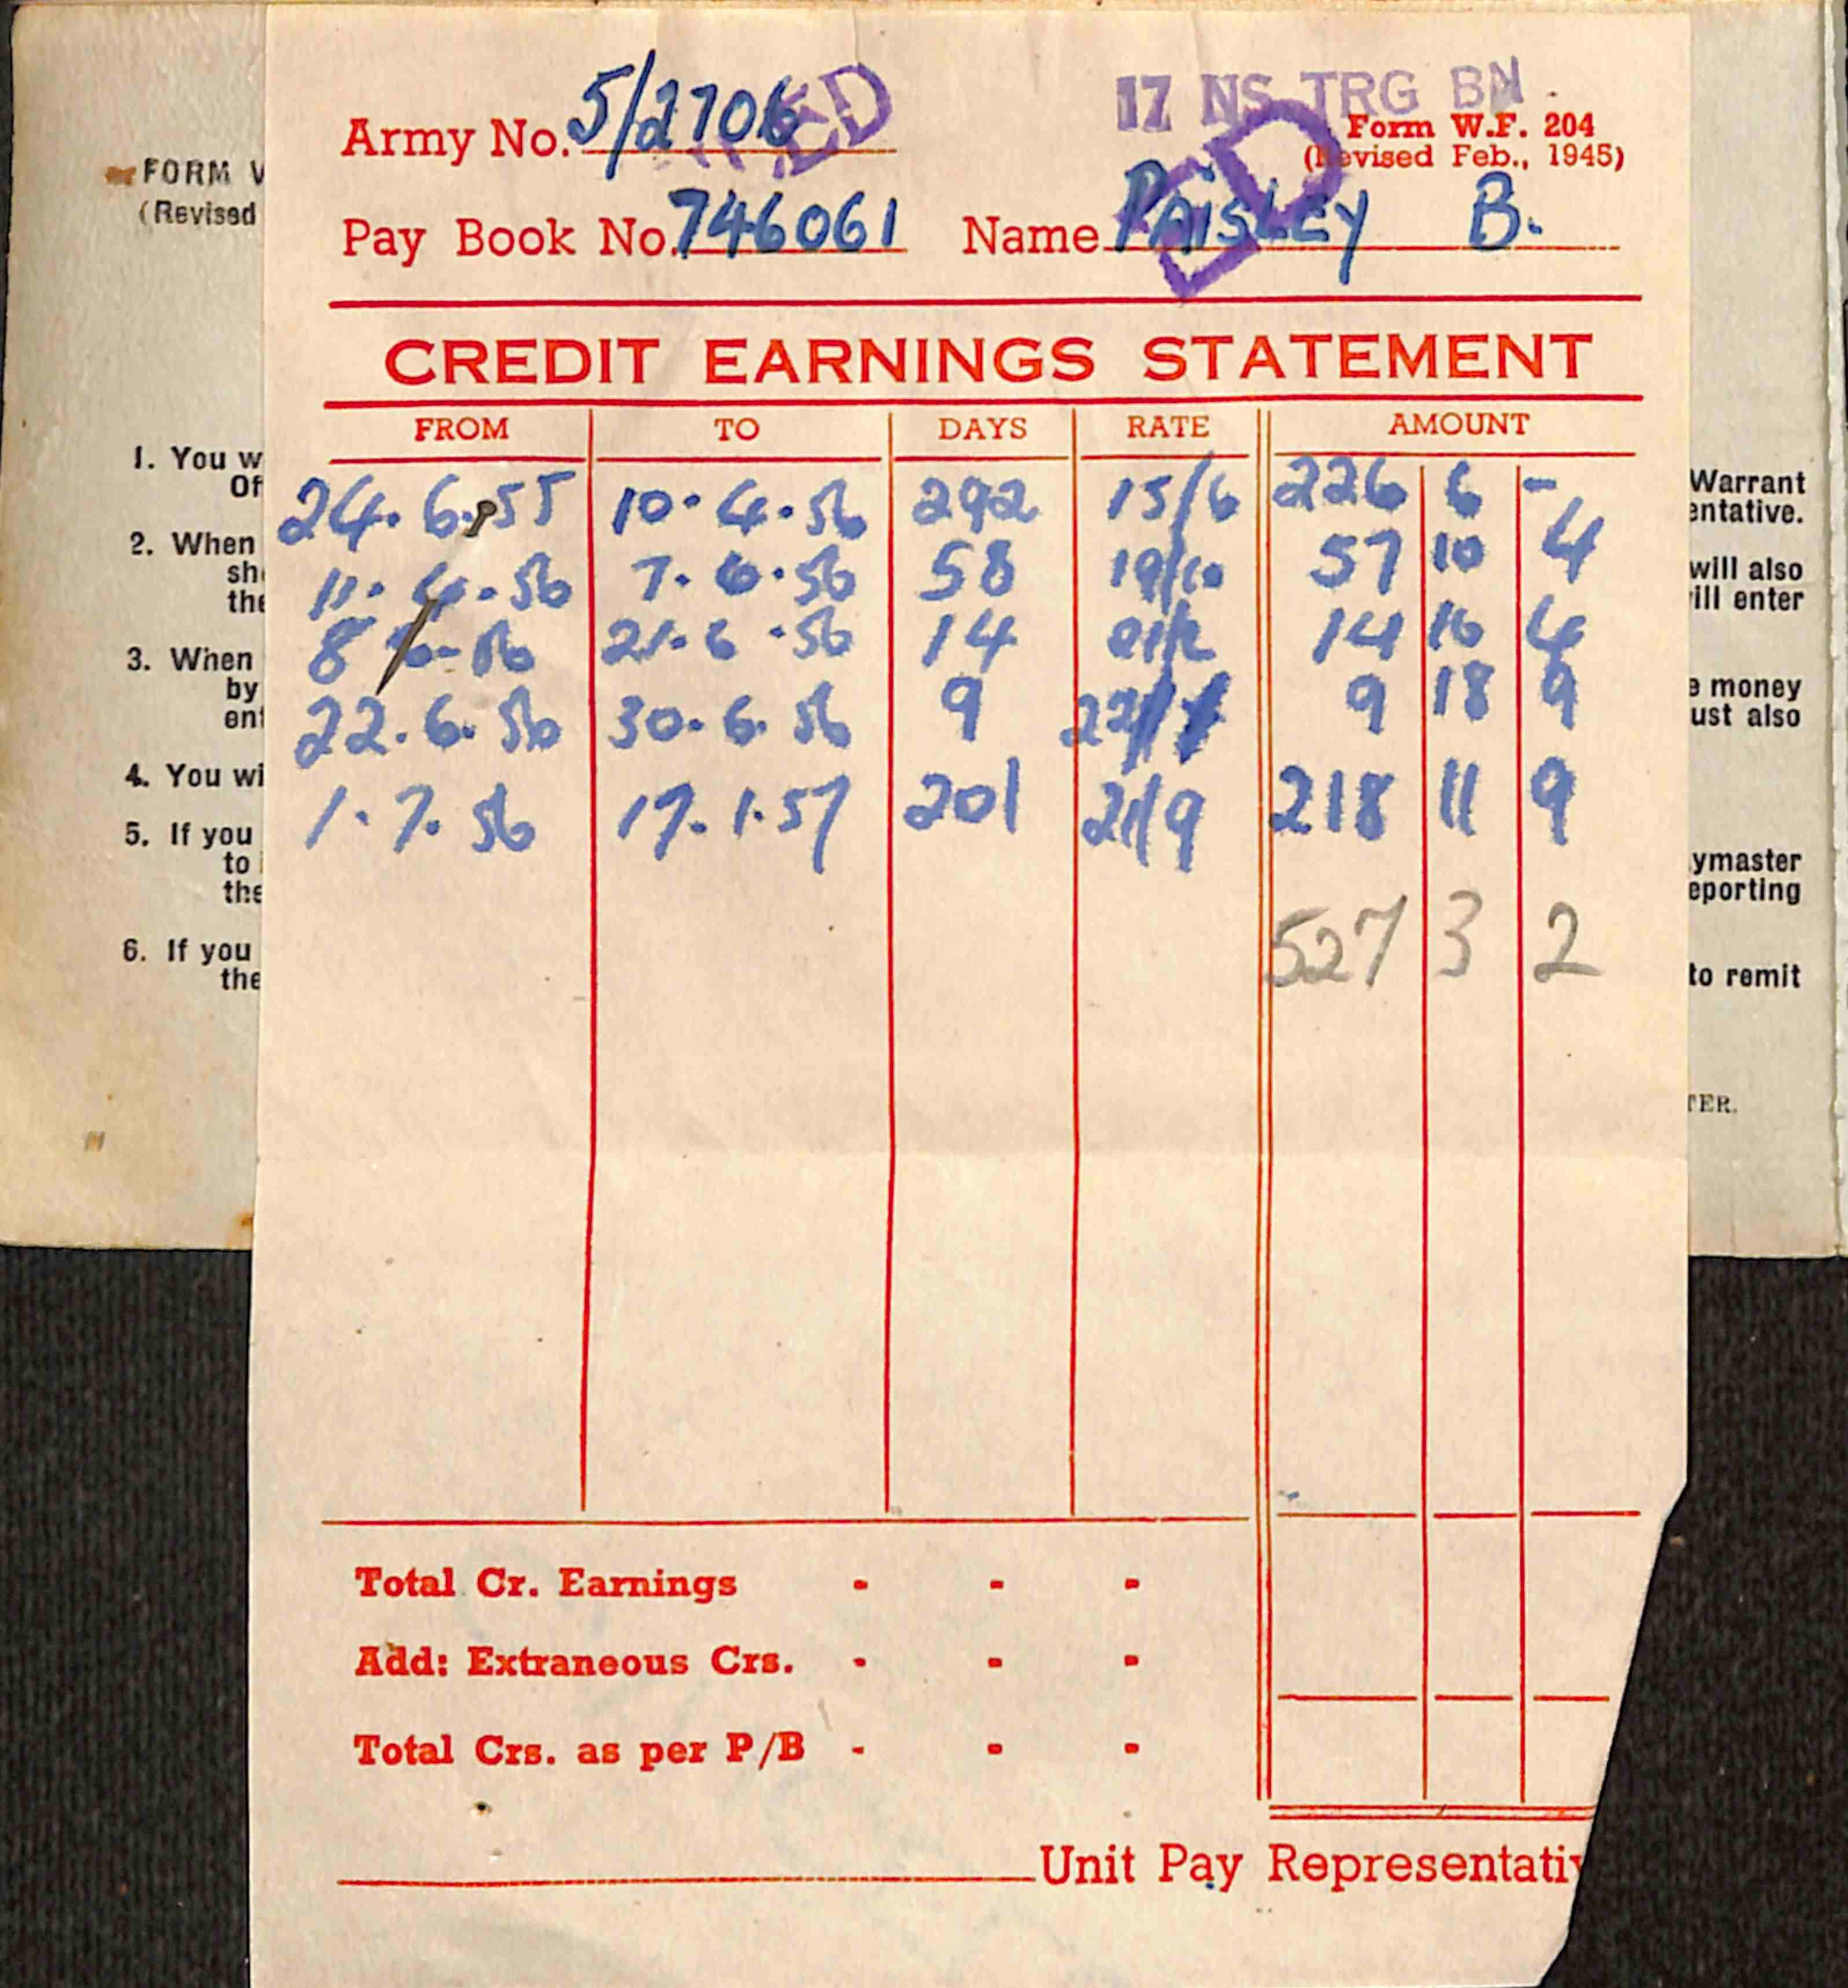 17 NS TRG BN
Army No. 5/2706
Form W.F. 204
(Revised Feb., 1945)
Pay Book No. 746061 Name PAISLEY B.
CREDIT EARNINGS STATEMENT
FROM TO DAYS RATE AMOUNT
24.6.55 10.4.56 292 15/6 226 6 -
11.4.56 7.6.56 58 19/10 57 10 4
8 6-56 21.6.56 14 21/2 14 16 4
22.6.56 30.6.56 9 22/1 9 18 9
1.7.56 17.1.57 201 21/9 218 11 9
527 3 2
Total Cr. Earnings - - -
Add: Extraneous Crs. - - -
Total Crs. as per P/B - - -
Unit Pay Representativ
FORM
(Revised
1. You w
Of
2. When
the
3. When
by
4. You wi
5. If you
to
the
6. If you
the
Warrant
entative.
will also
ill enter
e money
ust also
ymaster
eporting
to remit
TER.